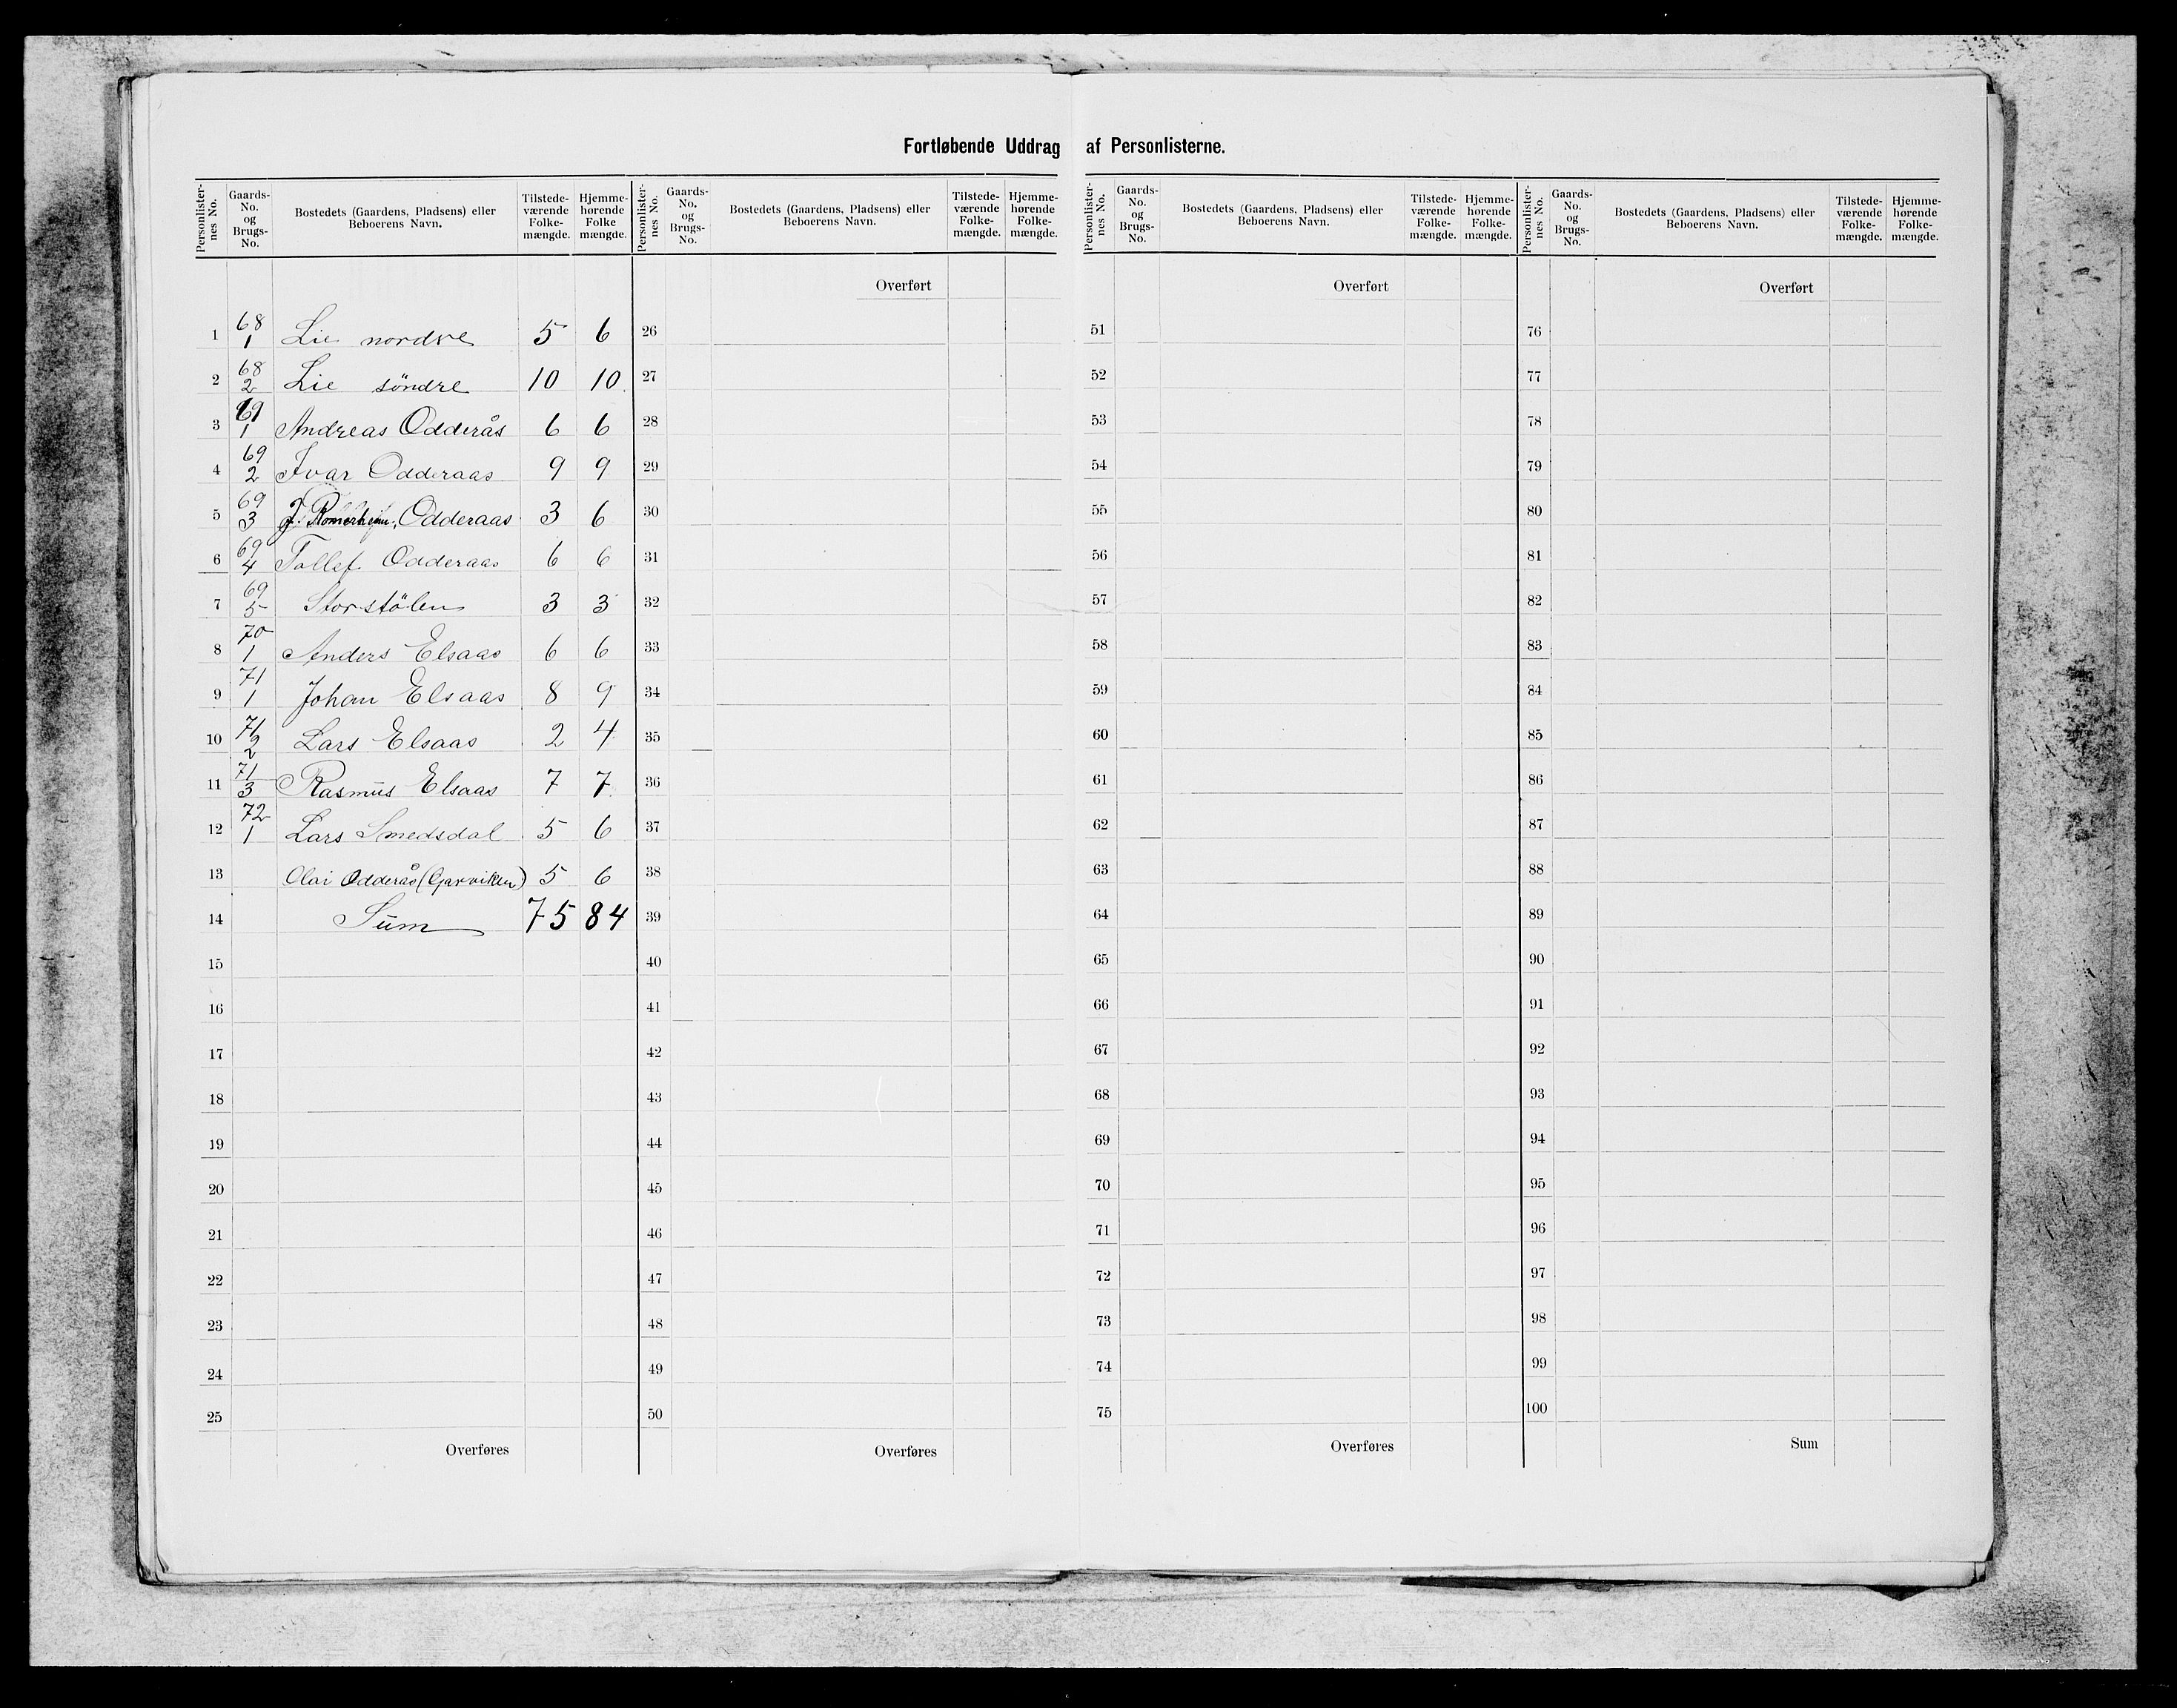 Fortløbende Uddrag af Personlisterne.
Personlister-nes No. | Gaards-No. og Brugs-No. | Bostedets (Gaardens, Pladsens) eller Beboerens Navn. | Tilstede-værende Folke-mængde. | Hjemme-hørende Folke mængde.
1 68/1 Lie nordre 5 6
2 68/2 Lie söndre 10 10
3 69/1 Andreas Odderås 6 6
4 69/2 Ivar Odderaas 9 9
5 69/3 J. Romerheim, Odderaas 3 6
6 69/4 Tollef Odderaas 6 6
7 69/5 Storstölen 3 3
8 70/1 Anders Elsaas 6 6
9 71/1 Johan Elsaas 8 9
10 71/2 Lars Elsaas 2 4
11 71/3 Rasmus Elsaas 7 7
12 72/1 Lars Smedsdal 5 6
13 Olai Odderås (Garviken) 5 6
14 Sum 75 84
15
16
17
18
19
20
21
22
23
24
25
Overføres
Personlister-nes No. | Gaards-No. og Brugs-No. | Bostedets (Gaardens, Pladsens) eller Beboerens Navn. | Tilstede-værende Folke-mængde. | Hjemme-hørende Folke-mængde.
Overført
26
27
28
29
30
31
32
33
34
35
36
37
38
39
40
41
42
43
44
45
46
47
48
49
50
Overføres
Personlister-nes No. | Gaards-No. og Brugs-No. | Bostedets (Gaardens, Pladsens) eller Beboerens Navn. | Tilstede-værende Folke-mængde. | Hjemme-hørende Folke-mængde.
Overført
51
52
53
54
55
56
57
58
59
60
61
62
63
64
65
66
67
68
69
70
71
72
73
74
75
Overføres
Personlister-nes No. | Gaards-No. og Brugs-No. | Bostedets (Gaardens, Pladsens) eller Beboerens Navn. | Tilstede-værende Folke-mængde. | Hjemme-hørende Folke-mængde.
Overført
76
77
78
79
80
81
82
83
84
85
86
87
88
89
90
91
92
93
94
95
96
97
98
99
100
Sum